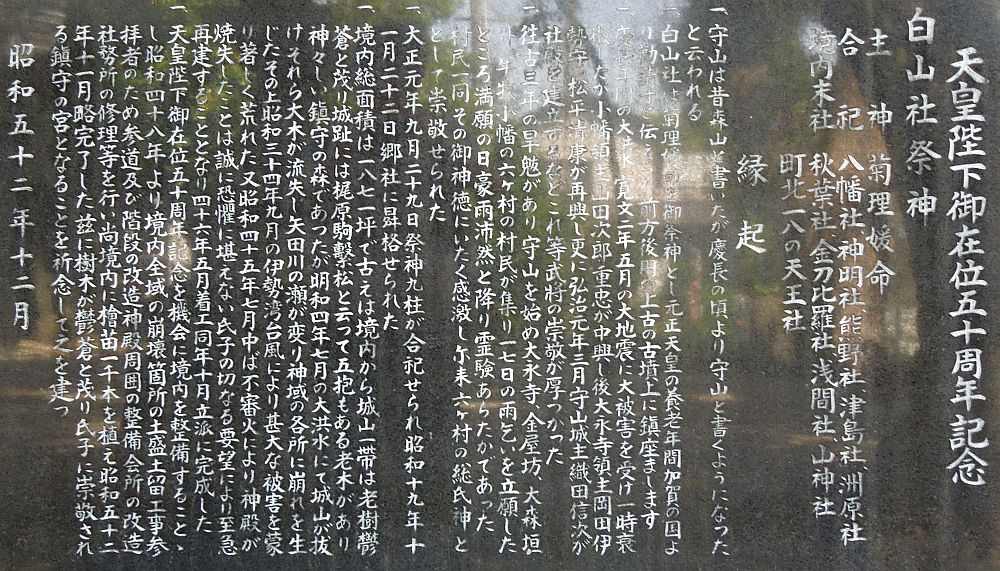 天皇陛下御在位五十周年記念
白山社祭神
主神　菊理媛命
合祀　八幡社、神明社、熊野社、津島社、洲原社
秋葉社、金刀比羅社、浅間社、山神社
境内末社　町北一八の天王社
縁起
一、守山は昔森山と書いたが慶長の頃より守山と書くようになった
と云われる
一、白山社は菊理媛命を御祭神とし元正天皇の養老年間加賀の国よ
り勧請すと伝え 前方後円の上古の古墳上に鎮座まします
一、年間の大洪水、寛文二年五月の大地震に大被害を受け一時衰
微したが小幡領主山田次郎重忠が中興し後大永寺領主岡田伊
勢守、松平清康が再興し更に弘治元年三月守山城主織田信次が
社殿を建立するなどこれ等武将の崇敬が厚つかった
一、往古三年の旱魃があり守山を始め大永寺、金屋坊、大森垣
外、牛牧、小幡の六ヶ村の村民が集り一七日の雨乞いを立願した
ところ満願の日豪雨沛然と降り霊験あらたかであった
村民一同その御神徳にいたく感激し尓来六ヶ村の総氏神と
して崇敬せられた
一、大正元年九月二十九日祭神九柱が合祀せられ昭和十九年十
一月二十二日郷社に昇格せられた
一、境内総面積は一八七一坪で古えは境内から城山一帯は老樹鬱
蒼と茂り城趾には梶原駒繫松と云って五抱もある老木があり
神々しい鎮守の森であったが明和四年七月の大洪水にて城山が抜
けそれら大木が流失し矢田川の瀬が変り神域の各所に崩れを生
じたその上昭和三十四年九月の伊勢湾台風により甚大な被害を蒙
り著しく荒れた又昭和四十五年七月中ば不審火により神殿が
焼失したことは誠に恐懼に堪えない氏子の切なる要望により至急
再建することとなり四十六年五月着工同年十月立派に完成した
一、天皇陛下御在位五十周年記念を機会に境内を整備すること、
し昭和四十八年より境内全域の崩壊箇所の土盛土留工事参
拝者のため参道及び階段の改造神殿周囲の整備会所の改造
社務所の修理等を行い尚境内に檜苗一千本を植え昭和五十二
年十一月略完了した茲に樹木が鬱蒼と茂り氏子に崇敬され
る鎮守の宮となることを祈念して之を建つ
昭和五十二年十二月